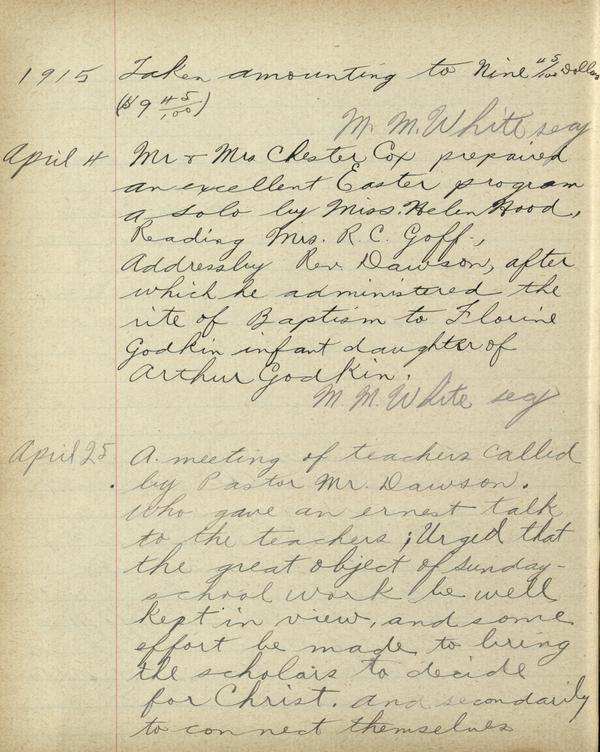 1915 Taken amounting to Nine 45/100 Dollars
($9 45/100)
M. M. White secy
April 4 Mr & Mrs Chester Cox prepaired
an excellent Easter program
a solo by Miss. Helen Hood,
Reading Mrs. R. C. Goff.,
Addressby Rev. Dawson, after
which he administered the
rite of Baptism to Florine
Godkin infant daughter of
Arthur Godkin.
M. M. White secy
April 25 A meeting of teachers called
by Pastor Mr. Dawson.
Who gave an ernest talk
to the teachers; Urged that
the great object of Sunday-
school work be well
kept in view, and some
effort be made to bring
the scholars to decide
for Christ. and secondarily
to connect themselves